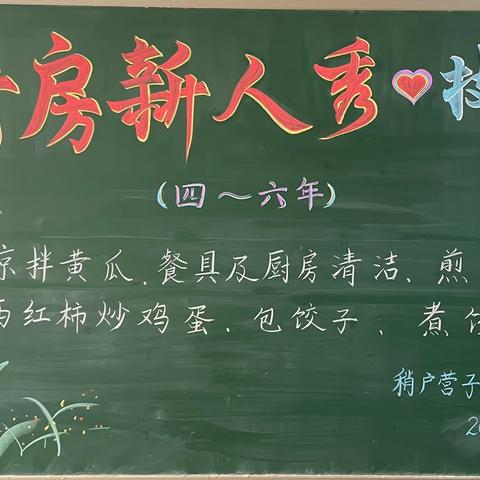 房新人秀 技
(四～六年)
凉拌黄瓜、餐具及厨房清洁、煎
西红柿炒鸡蛋、包饺子、煮饺
稍户营子
20